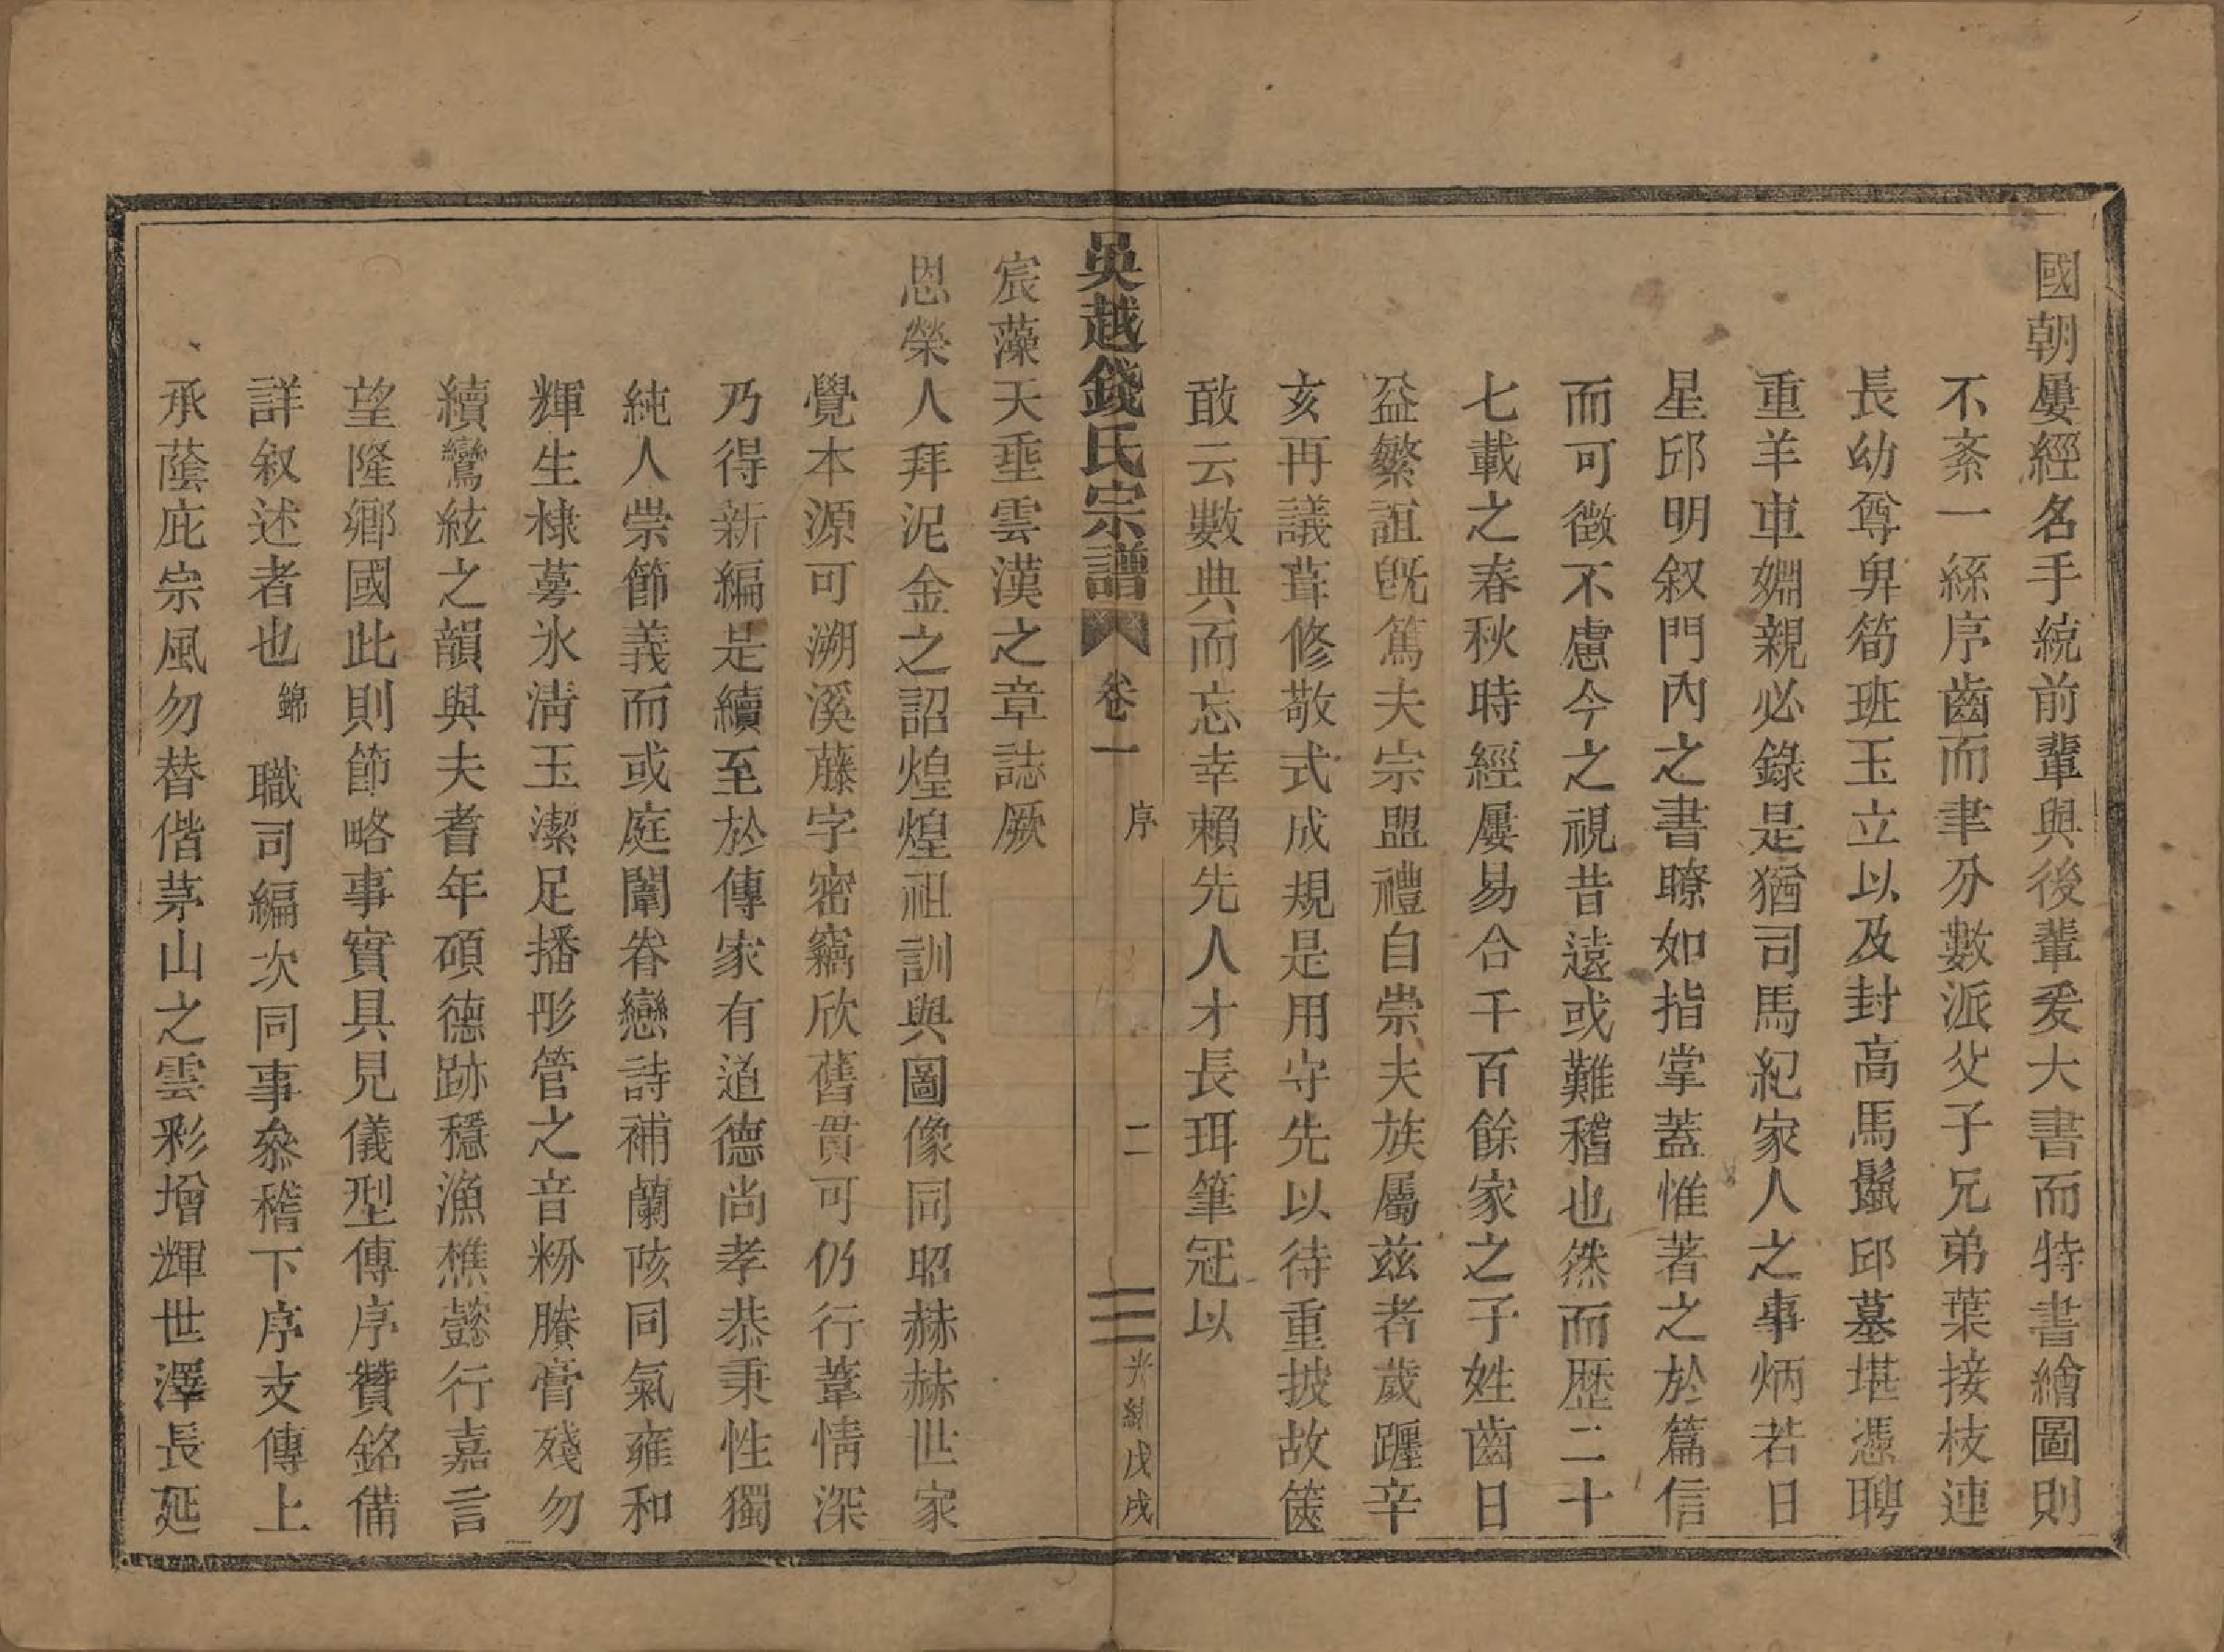 國朝屢經名手統前輩與後輩爰大書而特書繪圖則
不紊一絲序齒而聿分數派父子兄弟葉接枝連
長幼尊卑筍班玉立以及封高馬鬛邱墓堪憑聘
重羊車姻親必錄是猶司馬紀家人之事炳若日
星邱明叙門內之書瞭如指掌蓋惟著之於篇信
而可徵不慮今之視昔遠或難稽也然而歷二十
七載之春秋時經屢易合千百餘家之子姓齒日
益繁誼旣篤夫宗盟禮自崇夫族屬兹者歲躔辛
亥再議葺修敬式成規是用守先以待重披故篋
敢云數典而忘幸賴先人才長珥筆冠以
吳越錢氏宗譜 卷一 序 二 光緒戊戌
宸藻天垂雲漢之章誌厥
恩榮人拜泥金之詔煌煌祖訓與圖像同昭赫赫世家
覺本源可溯溪藤字密竊欣舊貫可仍行葦情深
乃得新編是續至於傳家有道德尚孝恭秉性獨
純人崇節義而或庭闈眷戀詩補蘭陔同氣雍和
輝生棣萼氷淸玉潔足播彤管之音粉賸膏殘勿
續鸞絃之韻與夫耆年碩德跡穩漁樵懿行嘉言
望隆鄉國此則節略事實具見儀型傳序贊銘備
詳叙述者也錦職司編次同事叅稽下序支傳上
承蔭庇宗風勿替偕茅山之雲彩增輝世澤長延